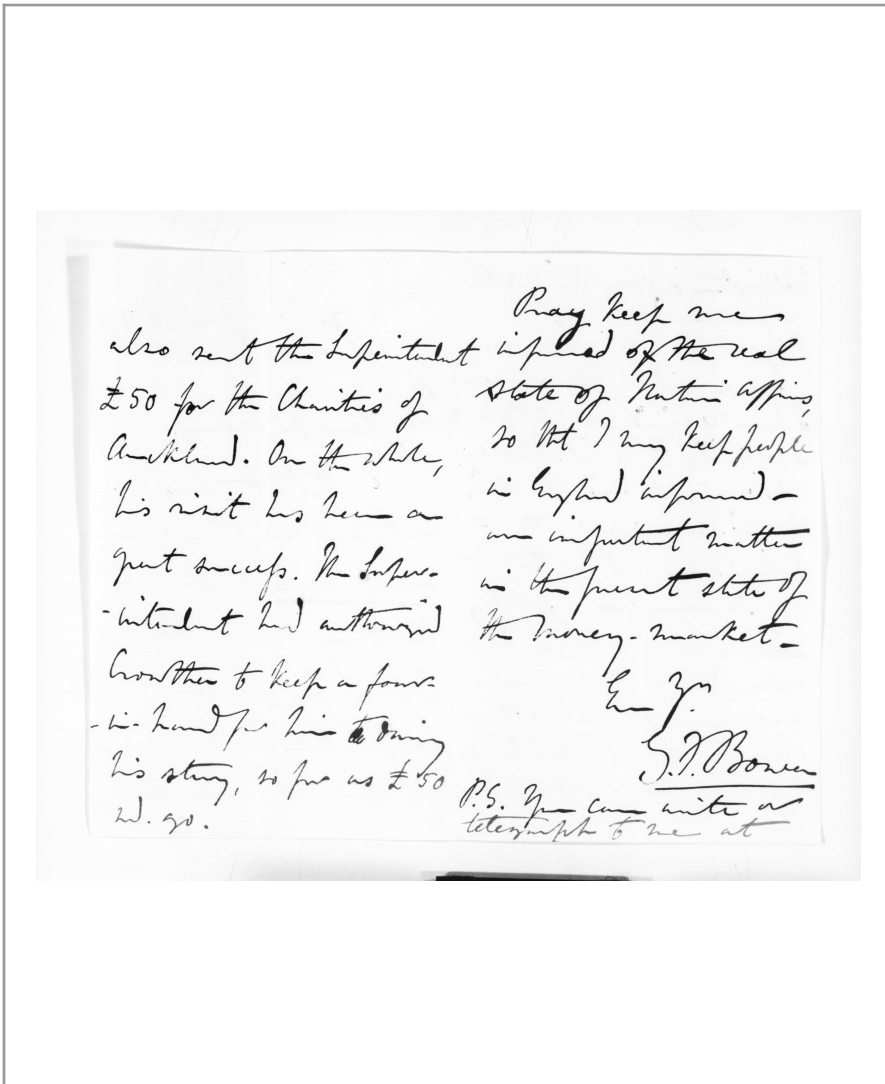 also sent the Superintendent
£50 for the Charities of
Auckland. On the whole,
his visit has been a
great success. The Super-
-intendent had authorized
Crowther to keep a four-
-in-hand for him during
his stay, so far as £50
wd. go.
Pray keep me
informed of the real
state of Native affairs,
so that I may keep people
in England informed -
an important matter
in the present state of
the money-market -
Ever Yrs
G.F. Bowen
P.S. You can write or
telegraph to me at